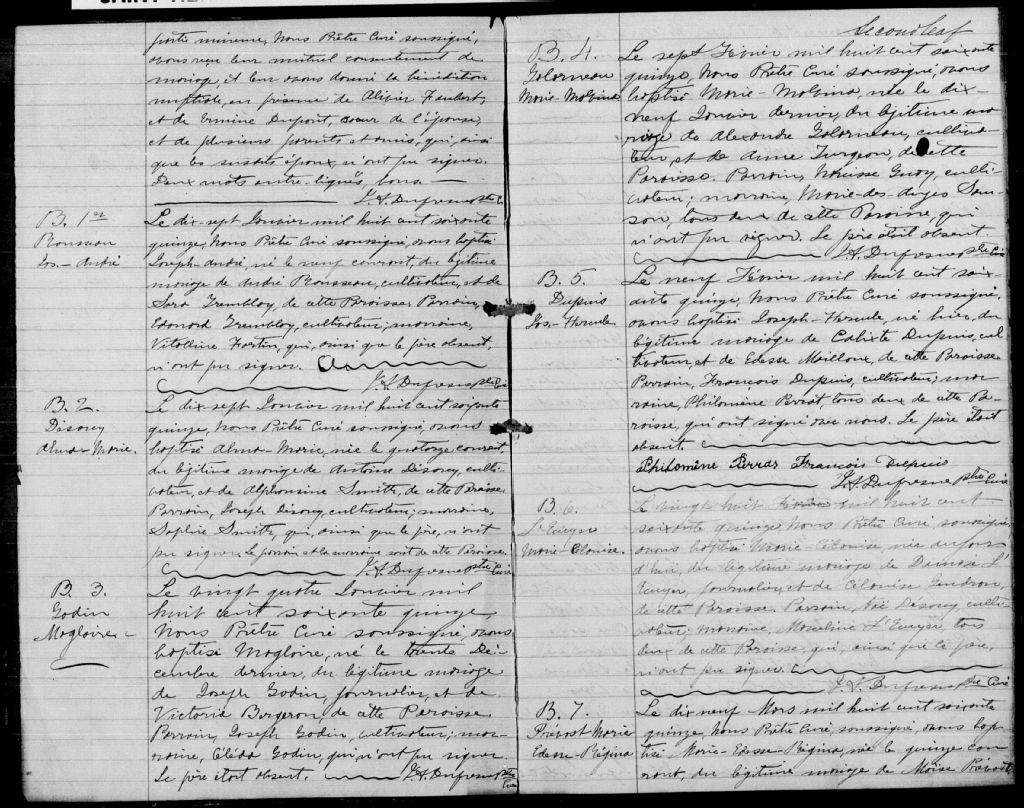 partie mineure, Nous Prêtre Curé soussigné,
avons reçu leur mutuel consentement de
mariage, et leur avons donné la bénédiction
nuptiale, en présence de Olivier Faubert,
et de Ermine Dupont, sœur de l'épouse,
et de plusieurs parents et amis, qui, ainsi
que les susdits époux, n'ont pu signer.
Deux mots entre-lignés, bons.
J. A. Dufresne ptre C
B. 1er
Rousseau
Jos.-André
Le dix-sept Janvier mil huit cent soixante
quinze, Nous Prêtre Curé soussigné, avons baptisé
Joseph-André, né le neuf courant, du légitime
mariage de André Rousseau, cultivateur, et de
Sara Tremblay, de cette Paroisse. Parrain,
Edouard Tremblay, cultivateur; marraine,
Vitaline Fortin, qui, ainsi que le père absent,
n'ont pu signer.
J. A. Dufresne ptre Curé
B. 2.
Disoucy
Alma-Marie.
Le dix sept Janvier mil huit cent soixante
quinze, Nous Prêtre Curé soussigné, avons
baptisé Alma-Marie, née le quatorze courant,
du légitime mariage de Antoine Disoucy, culti-
vateur, et de Alphonsine Smith, de cette Paroisse.
Parrain, Joseph Disoucy, cultivateur; marraine,
Sophie Smith, qui, ainsi que le père, n'ont
pu signer. Le parrain et la marraine sont de cette Paroisse.
J. A. Dufresne ptre Curé
B. 3.
Godin
Magloire-
Le vingt quatre Janvier mil
huit cent soixante quinze,
Nous Prêtre Curé soussigné, avons
baptisé Magloire, né le trente Dé-
cembre dernier, du légitime mariage
de Joseph Godin, journalier, et de
Victoria Bergeron, de cette Paroisse.
Parrain, Joseph Godin, cultivateur; mar-
raine, Cléda Godin, qui n'ont pu signer.
Le père étant absent. J. A. Dufresne ptre
Curé
Second leaf
B. 4.
Galarneau
Marie-Malvina
Le sept Février mil huit cent soixante
quinze, Nous Prêtre Curé soussigné, avons
baptisé Marie-Malvina, née le dix-
neuf Janvier dernier, du légitime ma-
riage de Alexandre Galarneau, cultiva-
teur, et de Anne Turgeon, de cette
Paroisse. Parrain, Narcisse Guay, culti-
vateur; marraine, Marie-des-Anges Sam-
son, tous deux de cette Paroisse, qui
n'ont pu signer. Le père était absent.
J. A. Dufresne ptre Curé
B. 5.
Dupuis
Jos.-Hercule
Le neuf Février mil huit cent soix-
ante quinze, Nous Prêtre Curé soussigné,
avons baptisé Joseph-Hercule, né hier, du
légitime mariage de Calixte Dupuis, cul-
tivateur, et de Edesse Mailloux, de cette Paroisse.
Parrain, François Dupuis, cultivateur; mar-
raine, Philomène Perras, tous deux de cette Pa-
roisse, qui ont signé avec nous. Le père était
absent.
Philomène Perras François Dupuis
J. A. Dufresne ptre Curé
B. 6.
L'Ecuyer
Marie-Célanise.
Le vingt huit Février mil huit cent
soixante quinze Nous Prêtre Curé, soussigné,
avons baptisé Marie-Célanise, née aujour-
d'hui, du légitime mariage de Damase L'
Ecuyer, journalier, et de Célanise Gendron,
de cette Paroisse. Parrain, Noé Disoucy, culti-
vateur; marraine, Marceline L'Ecuyer, tous
deux de cette Paroisse, qui, ainsi que le père,
n'ont pu signer.
J. A. Dufresne ptre Curé
B. 7.
Prévost Marie
Edesse-Régina
Le dix neuf Mars mil huit cent soixante
quinze, Nous Prêtre Curé, soussigné, avons bap-
tisé Marie-Edesse-Régina, née le quinze cou-
rant, du légitime mariage de Moïse Prévost